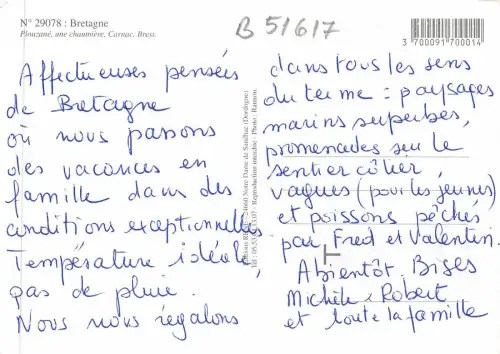 N° 29078 : Bretagne
Plouzané, une chaumière, Carnac, Brest.
B 51617
3 700091 970014
Affectueuses pensées
de Bretagne
où nous passons
des vacances en
famille dans des
conditions exceptionnelles
Température idéale,
pas de pluie.
Nous nous régalons
dans tous les sens
du terme : paysages
marins superbes,
promenades sur le
sentier côtier,
vagues (pour les jeunes)
et poissons pêchés
par Fred et Valentin.
A bientôt. Bises
Michèle, Robert
et toute la famille